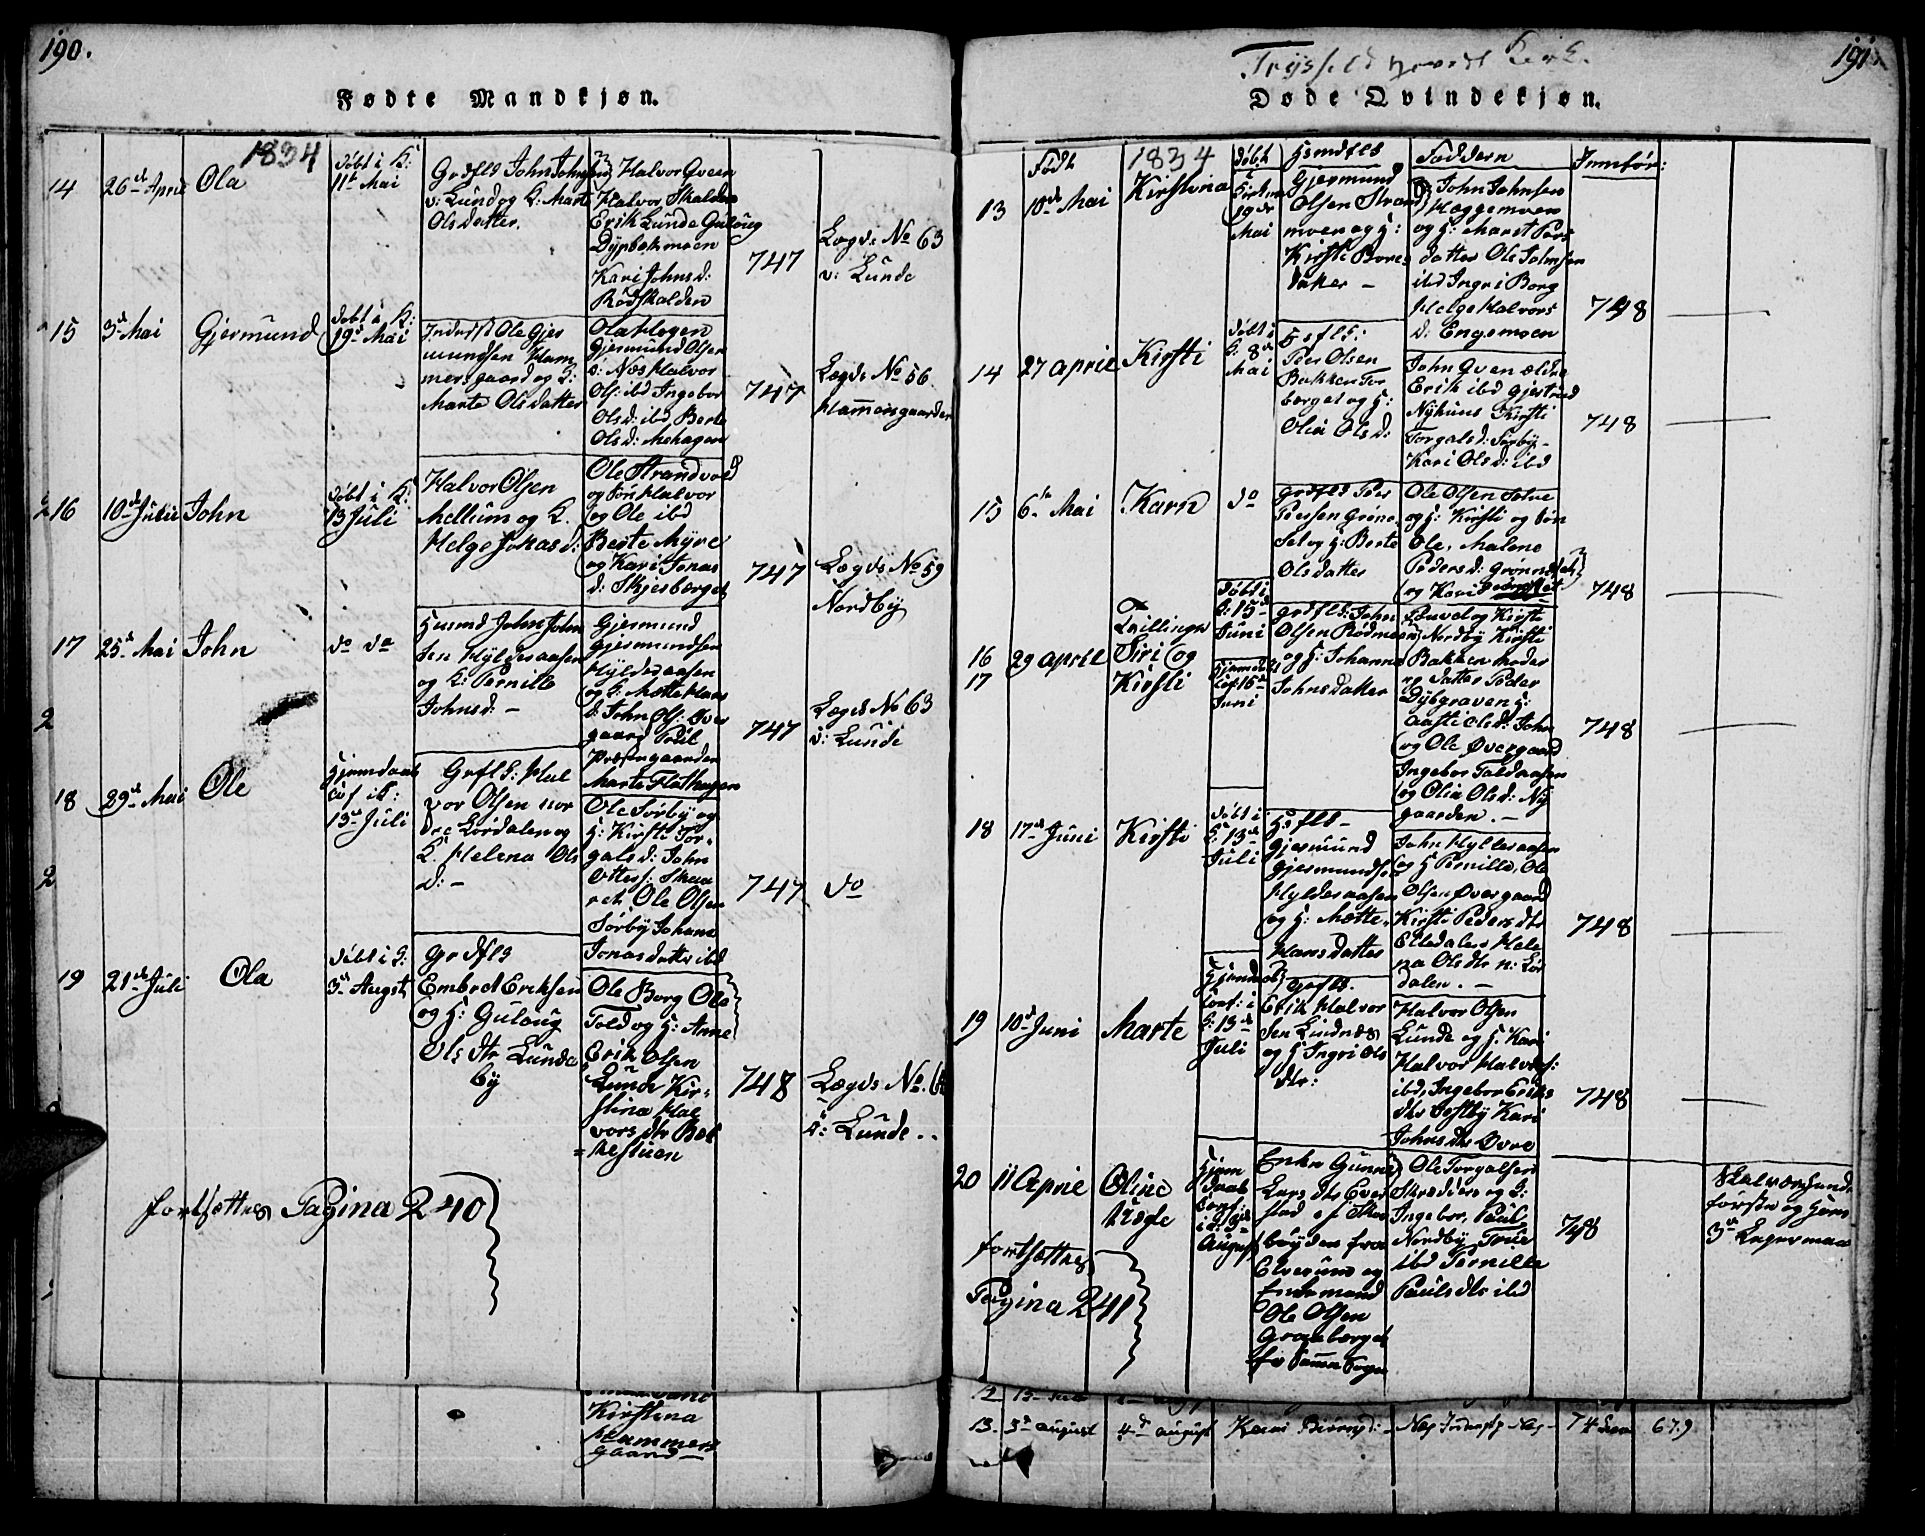 190.
Fødte Mandkjøn.
1834
14 26de April Ola
Døbt i K:
11te Mai
Grdfls John Johnsen
v: Lund og K: Marte
Olsdatter.
Halvor Qveen
Halvor Skalden
Erik Lunde Guloug
Dypbekmoen
Kari Johnsd:
Rødskalden
747
Lægds No 63
v: Lunde
15 3d Mai Gjermund
Døbt i K:
19de Mai
Inderst Ole Gjer
mundsen Ham
mersgaard og K:
Marte Olsdatter
Ola Hagen
Gjermund Olsen
v: Næs Halvor
Ols: ibd Ingebor
Olsd: ibd Berte
Olsd: Mehagen
747
Lægds No 56
Hammersgaarden
16 10de Juli John
Døbt i K:
13 Juli
Halvor Olsen
Mellum og K.
Helge Jonasd:
Ole Strandvold
og Søn Halvor
og Ole ibd
Berte Myre
og Kari Jonas
d: Skjesberget
747
Lægds No 59
Nordby
17 25d Mai John
do do
Husmd John John
sen Hyldesaasen
og K: Pernille
Johnsd: -
Gjermund
Gjermundsen
Hyldesaasen
og K: Mætte Hans
d: John Ols: Øver
gaard
Præstegaarden
Marte Flathagen
747
Lægds No 63
v: Lunde
18 29de Mai Ole
Hjemdøbt
13de Juli
Grfls: Hal
vor Olsen nor
dre Lørdalen og
K. Helena Ols
d: -
Ole Sørby og
H: Kirsti Tor-
galsd: John
Otters:
Ole Olsen
Sørby Johana
Jonasdatter ibd
747
do
19 21de Juli Ola
Døbt i K:
3de August
Grdfls
Embret Eriksen
og H: Guloug
Olsdtr Lunde
by
Ole Borg Ole
Told og H: Anne
Erik Olsen
Lunde Kir-
stina Hal
vorsdtr Bek
kestuen
748
Lægds No. 6
v: Lunde..
fortsættes Pagina 240
Kirstina
Hammers
gaard -
191
Trysild Hoveds Kirk.
Døde Qvindekjøn.
Født 1834 Døbt
Hsmdfls
Faddern
Jevnfør:
13 18de Mai Kirstina
i
Kirken
19de
Mai
Gjermund
Olsen Strand
moen og H:
Kirsti Pors
datter -
John Johnsen
Hæggemoen
og H: Maret Pers
datter Ole Johnsen
ibd Ingri Borg
Helge Halvors
d: Engemoen
748
14 27 April Kirsti
Døbt i
K: 8de
Mai
Hsfls:
Peer Olsen
Bakken Tor
berget og H:
Olia Olsd:
John Qven ældre
Erik ibd Gjertrud
Nyhuus Kirsti
Torgalsd: Sørby-
Kari Olsd: ibd
748
15 6te Mai Karn
do
Grdfls Peer
Peersen Grøne
set og H: Berte
Olsdatter
Ole Olsen Sætre
og H: Kirsti og Søn
Ole, Malene
Pedersd: Grønnesset
og Kari
748
16
17
29 April
Tvillinger
Siri og
Kirsti
Døbt i
K: 15de
Juni
Juni
Grdfls: John
Olsen Rødmoen
og H: Johanne
Johnsdatter
Pauvel og Kirsti
Nordby Kirsti
Bakken moder
og datter Peder
Dybgraven H:
Aasti Olsd: John
og Ole Øvergaard
Ingebor Toldaasen
og Olia Olsd: Ny
gaarden. -
748
18 17de Juni Kirsti
Døbt i
K: 13de
Juli
Hsfls-
Gjermund
Gjermundsen
Hyldesaasen
og H: Mætte
Hansdatter
John Hyldesaasen
og H Pernille, Ole
Olsen Øvergaard
Kirsti Pedersdtr
Elledalen Hele
na Olsdtr n: Lør
dalen. -
748
19 10de Juni Marte
Hjemdøbt
conf: i
K: 13de
Juli
Grfls.
Erik Halvor
sen Lindnæs
og H Ingri Ols
dtr:
Halvor Olsen
Lunde og H. Kari
Halvor Halvors:
ibd, Ingebor Eriks
dtr Østby Kari
Johnsdtr Øvre
748
20 11 April Oline
Uægte
Hjem
døbt
conf:
i K: 3de
August
Enke Gunne
Larsdtr Ever
stad
bøyden fra
Elverum og
Enkemand
Ole Olsen
Graaberget
fr samme Sogn
Ole Torgalsen
Skrædder og K:
Ingebor, Paul
Nordby, True
ibd Pernille
Paulsdtr ibd
748
Skal være hendes
første og hans
3de Leiermaal
fortsættes
Pagina 241
13. 3d August 4d August Kari Biørnsd: Næs 74 679